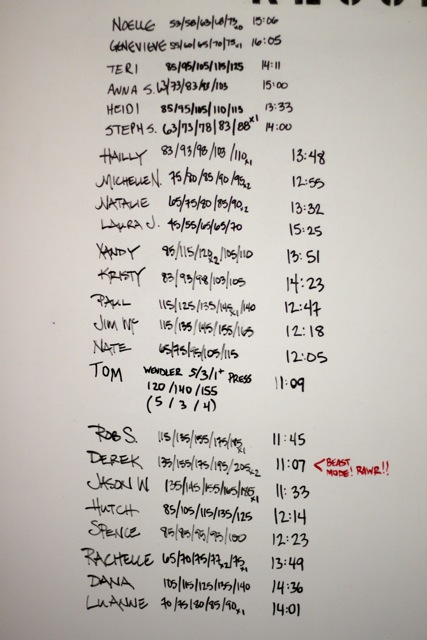 NOELLE 53/58/63/68/73x0 15:06
GENEVIEVE 55/60/65/70/75x1 16:05
TERI 85/95/105/115/125 14:11
ANNA S. 63/73/83/93/103 15:00
HEIDI 85/95/105/110/113 13:33
STEPH S. 63/73/78/83/88x1 14:00
HAILLY 83/93/98/103/110x1 13:48
MICHELLE N. 75/80/85/90/95x2 12:55
NATALIE 65/75/80/85/90x2 13:32
LAURA J. 45/55/65/65/70 15:25
XANDY 95/115/120x2/105/110 13:51
KRISTY 83/93/98/103/105 14:23
PAUL 115/125/135/145x1/140 12:47
JIM Mc 115/135/145/155/165 12:18
NATE 65/75/95/105/115 12:05
TOM WENDLER 5/3/1+ PRESS 11:09
120/140/155
(5/3/4)
ROB S. 115/135/155/175/195x1 11:45
DEREK 135/155/175/195/205x2 11:07 < BEAST
MODE! RAWR!!
JASON W. 135/145/155/165/185x1 11:33
HUTCH 85/105/115/135/125 12:14
SPENCE 85/85/95/95/100 12:23
RACHELLE 65/70/75/77x2/75x1 13:49
DANA 105/115/125/135/140 14:36
LUANNE 70/75/80/85/90x1 14:01